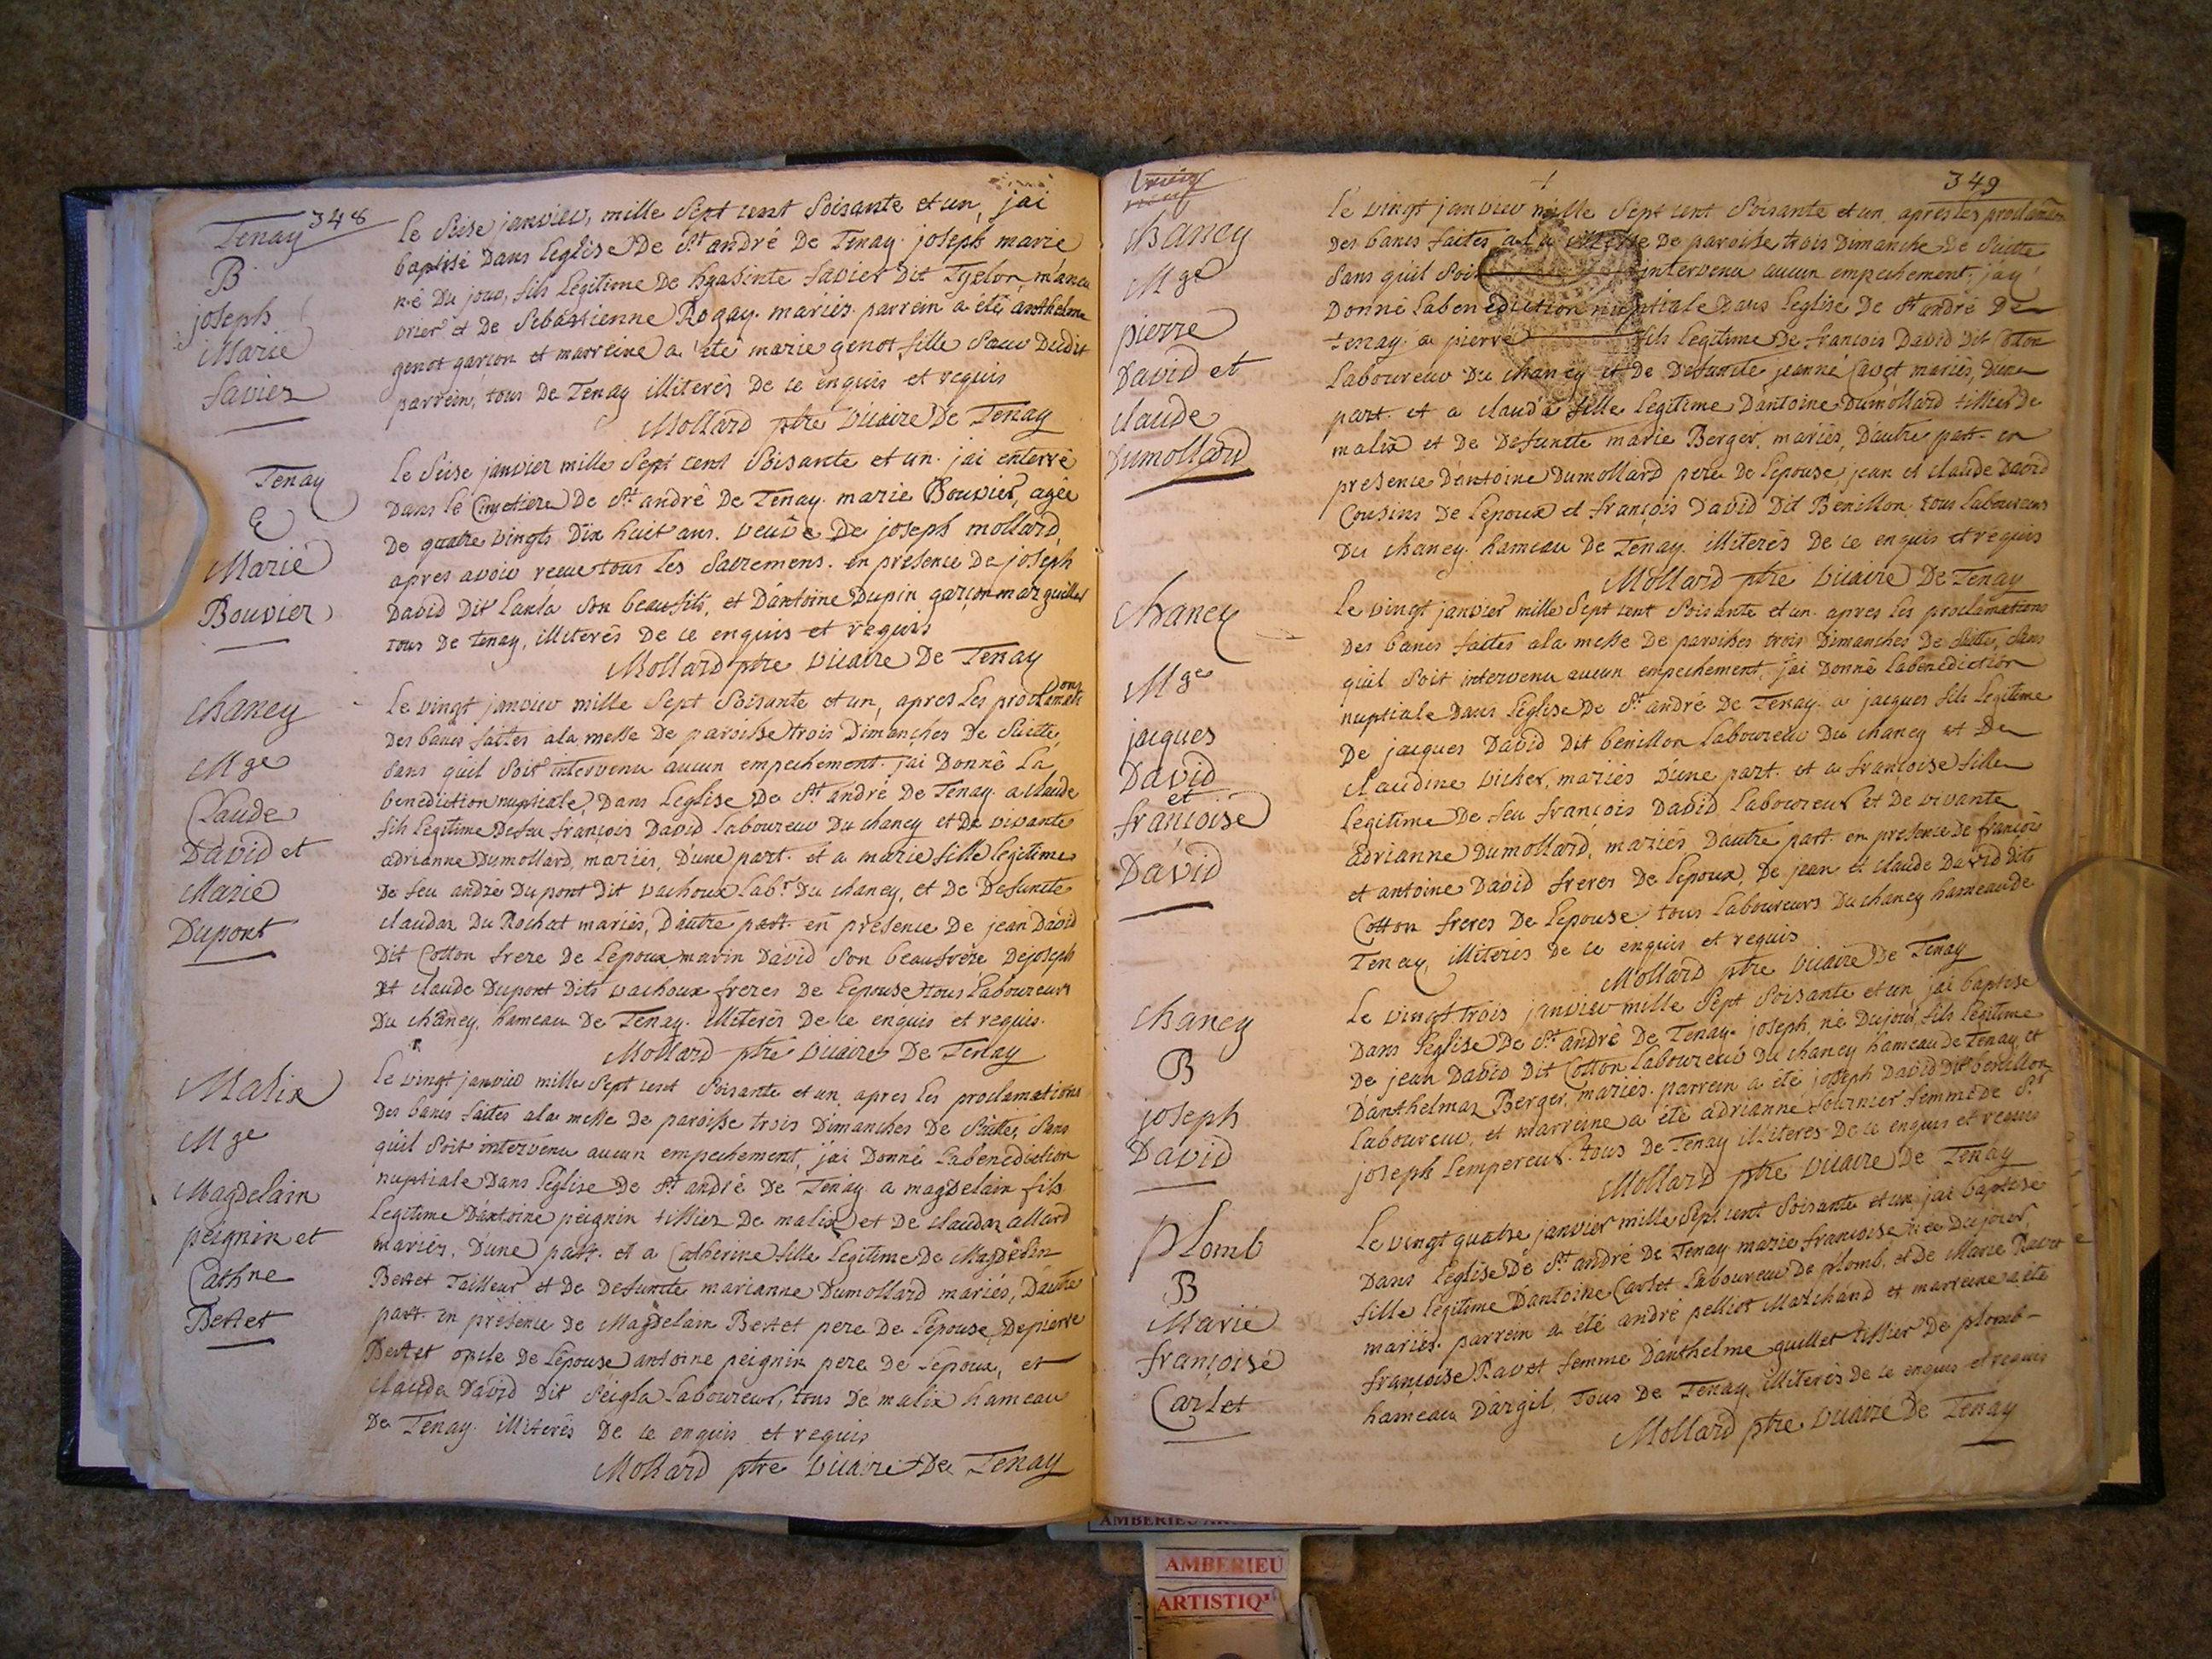 348
Tenay
B
joseph
Marie
Savier
le Seise janvier, mille Sept cent Soisante et un, jai
baptisé Dans Leglise De St andré De Tenay joseph marie
né Du jour, fils Legitime de hyasinte Savier Dit
vrier et De Sebastienne Rogay mariés parrein a été anthelme
genot garçon et marreine a été marie genot fille Sœur Dudit
parrein, tous De Tenay illiterés De ce enquis et requis
Mollard ptre Vicaire De Tenay
Tenay
E
Marie
Bouvier
le Seise janvier mille Sept cent Soisante et un jai enterré
Dans le Cimetiere De St andré De Tenay marie Bouvier, agée
De quatre vingts Dix huit ans. veuve De joseph mollard,
apres avoir reçue tous les Sacremens. en presence De joseph
David Dit Lanla Son beaufils, et D'antoine Dupin garçon marguiller
tous De tenay, illiterés De ce enquis et requis
Mollard ptre Vicaire De Tenay
chaney
Mge
Claude
David et
Marie
Dupont
Le vingt janvier mille Sept Soisante et un, apres Les proclamations
Des bancs faittes a la messe De paroisse trois Dimanches De Suitte,
Sans quil Soit intervenu aucun empechement. jai Donné La
benediction nuptiale, Dans Leglise De St andré De Tenay. a claude
fils Legitime De feu françois David Laboureur Du chaney et De vivante
adrianne Dumollard, mariés, D'une part. et a marie fille legitime
De feu andré Dupont Dit vachoux Labr Du chaney, et De Defuncte
claudaz Du Rochat mariés, D'autre part. en présence De jean David
Dit Cotton frere De Lepoux, marin David Son beaufrère De joseph
et claude Dupont Dits vachoux freres De Lepouse tous Laboureurs
Du chaney, hameau De Tenay. illiterés De ce enquis et requis.
Mollard ptre Vicaire De Tenay
Malix
Mge
Magdelain
peignin et
Cathne
Bertet
le vingt janvier mille Sept cent Soisante et un, apres Les proclamations
Des bancs faites a la messe De paroisse trois Dimanches De Suitte, Sans
quil Soit intervenu aucun empechement, jai Donné La benediction
nuptiale Dans leglise De St andré De Tenay a magdelain fils
Legitime D'antoine peignin tissier De malix et De claudaz allard
mariés, D'une part. et a Catherine fille Legitime De Magdelain
Bertet Tailleur et De Defuncte marianne Dumollard mariés, D'autre
part. en présence De Magdelain Bertet pere De Lepouse, De pierre
Bertet oncle De Lepouse antoine peignin pere De Lepoux, et
claude David Dit Seigla Laboureur, tous De malix hameau
De Tenay illiterés De ce enquis et requis
Mollard ptre Vicaire De Tenay
349
chaney
Mge
pierre
David et
claude
Dumollard
le vingt janvier mille Sept cent Soisante et un, apres Les proclamations
Des bancs faites a la Messe De paroisse trois Dimanche De Suitte
Sans quil Soit intervenu aucun empechement, jay
Donné La benediction nuptiale Dans leglise De St andré De
tenay a pierre fils Legitime De francois David Dit Coton
Laboureur Du chaney et De Defuncte jeanne Cavot mariés, D'une
part. et a clauda fille Legitime D'antoine Dumollard tissier De
malix et De Defuncte marie Berger, mariés, D'autre part. en
presence D'antoine Dumollard pere De Lepouse, jean et claude David
Cousins De Lepoux et françois David Dit Benillon tous Laboureurs
Du chaney. hameau De Tenay. illiterés De ce enquis et requis
Mollard ptre Vicaire De Tenay
chaney
Mge
jacques
David
et
francoise
David
Le vingt janvier mille Sept cent Soisante et un. apres Les proclamations
Des bancs faites a la messe De paroisses trois Dimanches De Suitte, Sans
quil Soit intervenu aucun empechement, jai Donné La benediction
nuptiale Dans Leglise De St andré De Tenay a jacques fils Legitime
De jacques David Dit benillon Laboureur Du chaney et De
claudine vicher, mariés D'une part. et a françoise fille
Legitime De feu francois David Laboureur et De vivante
adrianne Dumollard, mariés D'autre part. en presence De françois
et antoine David freres De Lepoux, De jean et claude David Dits
Cotton freres De Lepouse tous Laboureurs Du chaney hameau De
Tenay, illiterés De ce enquis et requis
Mollard ptre Vicaire De Tenay
chaney
B
joseph
David
Le vingt trois janvier mille Sept Soisante et un jai baptisé
Dans Leglise De St andré De Tenay joseph, né Dujour, fils Legitime
De jean David Dit Cotton Laboureur Du chaney hameau De Tenay, et
D'anthelmaz Berger, mariés. parrein a été joseph David Dit benillon
Laboureur, et marreine a été adrianne fournier femme De Sr
joseph Lempereur. tous De Tenay illiterés De ce enquis et requis
Mollard ptre Vicaire De Tenay
plomb
B
Marie
françoise
Carlet
Le vingt quatre janvier mille Sept cent Soisante et un, jai baptisé
Dans leglise De St andré De Tenay marie françoise née Du jour,
fille légitime D'antoine Carlet Laboureur De plomb, et De Marie Ravet
mariés. parrein a été andré pelliot Marchand et marreine a été
françoise Ravet femme D'anthelme guillet tissier De plomb
hameau D'argil, Tous De Tenay, illiterés De ce enquis et requis
Mollard ptre Vicaire De Tenay
AMBERIEU
ARTISTIQ